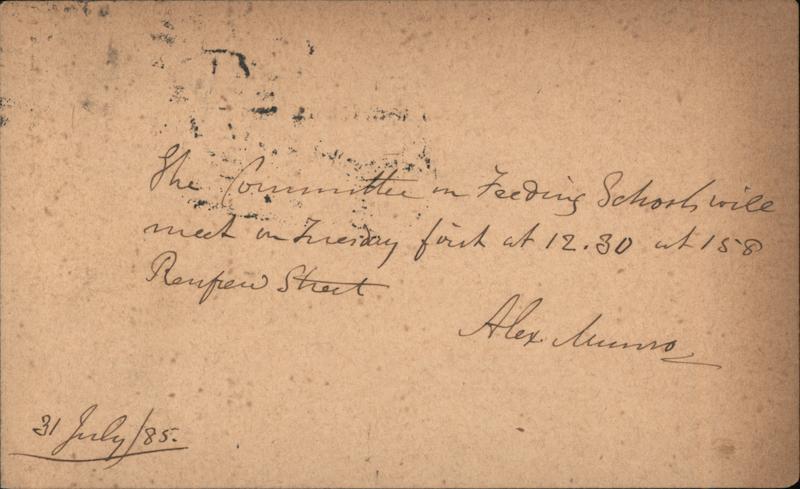 The Committee on Feeding Schools will
meet on Tuesday first at 12.30 at 158
Renfrew Street
Alex. Munro
31 July/85.